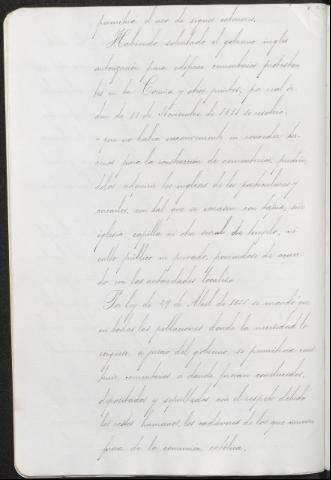 permitiría el uso de signos exteriores.
Habiendo solicitado el gobierno inglés
autorización para edificar cementerios protestan-
tes en la Coruña y otros puntos, por real or-
den de 13 de Noviembre de 1831 se resolvió,
"que no había inconveniente en conceder te-
rrenos para la construcción de cementerios, pudién-
dolos adquirir los ingleses de los particulares y
cercarlos, con tal que se cerrasen con tapia, sin
iglesia, capilla ni otra señal de templo, ni
culto público ni privado, poniéndose de acuer-
do con las autoridades locales."
Por ley de 29 de Abril de 1855 se mandó que
en todas las poblaciones donde la necesidad lo
exigiese, a juicio del gobierno, se permitiera cons-
truir cementerios, a donde fueran conducidos,
depositados y sepultados con el respeto debido
los restos humanos, los cadáveres de los que mueren
fuera de la comunión católica.